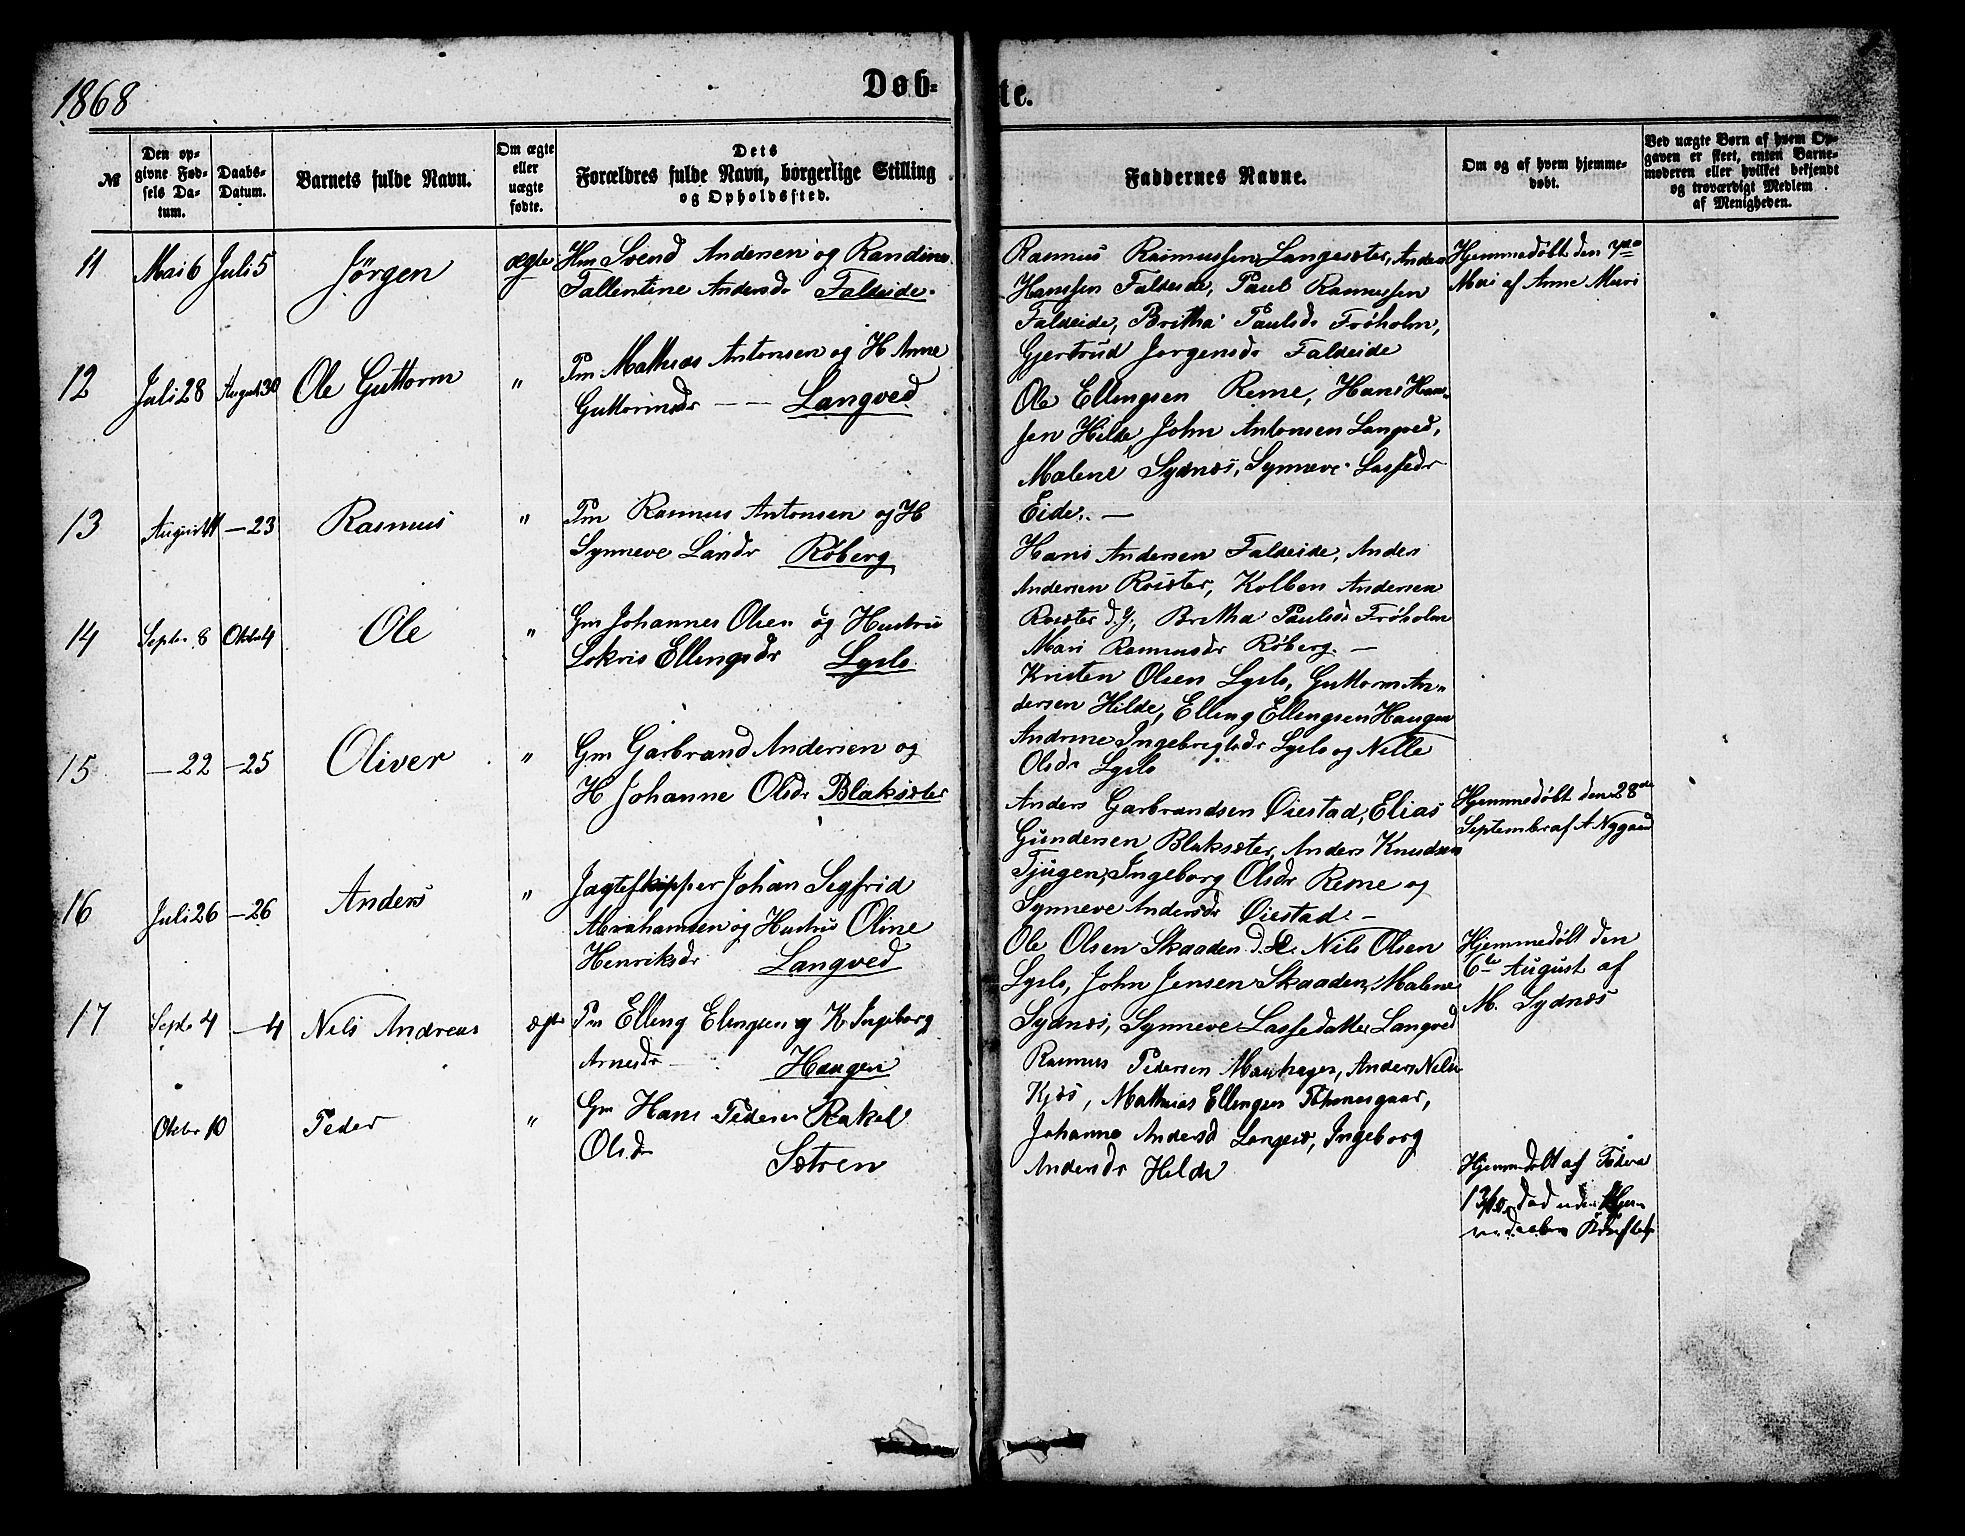 1868
Døb-
te.
№
Den op-
givne Fød-
sels Da-
tum.
Daabs-
Datum.
Barnets fulde Navn.
Om ægte
eller
uægte
fødte.
Dets
Forældres fulde Navn, borgerlige Stilling
og Opholdssted.
Faddernes Navne.
Om og af hvem hjemme-
døbt.
Ved uægte Børn af hvem Op-
gaven er skeet, enten Barne-
moderen eller hvilket bekjendt
og troværdigt Medlem
af Menigheden.
11 Mai 6 Juli 5 Jörgen ægte Hm Svend Andersen og Randine
Tallentine Andersdr Faldeide.
Rasmus Rasmussen Langesæter, Anders
Hanssen Faldeide, Paul Rasmussen
Faldeide, Britha Paulsdr Fröholm,
Gjertrud Jorgensdr Faldeide
Hjemmedöbt den 7de
Mai af Anne Muri
12 Juli 28 August 30 Ole Guttorm " Pm Mathias Antonsen og H Anne
Guttormsdr — — Langved
Ole Ellingsen Reme, Hans Han-
sen Hilde, John Antonsen Langved,
Malene Sydnæs, Synneve Lassedr
Eide. —
13 August 11 — 23 Rasmus " Pm Rasmus Antonsen og H
Synneve Larsdr Röberg
Hans Andersen Faldeide, Anders
Andersen Röisæter, Kolben Andersen
Röisæter d. y, Britha Paulsdr Fröholm
Mari Rasmusdr Röberg. —
14 Septr 8 Oktbr 4 Ole " Gm Johannes Olsen og Hustru
Lokris Ellingsdr Lyslo
Kristen Olsen Lyslo, Guttorm An-
dersen Hilde, Elling Ellingsen Haugen
Andrine Ingebrigtsdr Lyslo og Nille
Olsdr Lyslo
15 — 22 — 25 Oliver " Gm Garbrand Andersen og
H Johanne Olsdr Blaksæter
Anders Garbrandsen Öiestad, Elias
Gundersen Blaksæter, Anders Knudsen
Tjugen, Ingeborg Olsdr Reme og
Synneve Andersdr Öiestad. —
Hjemmedöbt den 28de
Septembr af A Nygaard
16 Juli 26 — 26 Anders " Jagteskipper Johan Segfrid
Abrahamsen og Hustru Oline
Henriksdr Langved
Ole Olsen Skaaden d. Æ. Nils Olsen
Lyslo, John Jensen Skaaden, Malene
Sydnæs, Synneve Lassedatter Langved
Hjemmedöbt den
6te August af
M. Sydnæs
17 Septr 4 — 4 Nils Andreas ægte Pm Elling Elingsen og K. Ingeborg
Arnesdr — Haugen
Rasmus Pedersen Maurhagen, Anders Nilsen
Kjös, Mathias Ellingsen Tohenesgaar,
Johanne Andersd Langesæ, Ingeborg
Andersdr Hilde
Oktbr 10 Peder " Gm Hans Pedersen Rakel
Olsdr Sætren
Hjemmedöbt af Federn
13/10, död uden Hjem-
medaabens